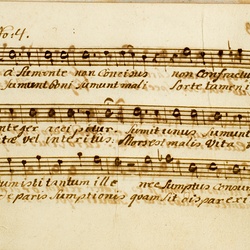 Fo: 4.
a Sumente non Concisus non Confractus
Sumunt boni Sumunt mali Sorte tamen i
nteger accipitur. Sumit unus Sumunt
tae vel interitus. Mors est malis Vita
um isti tantum ille nec Sumptus consu
c paris Sumptionis quam sit dispar exi